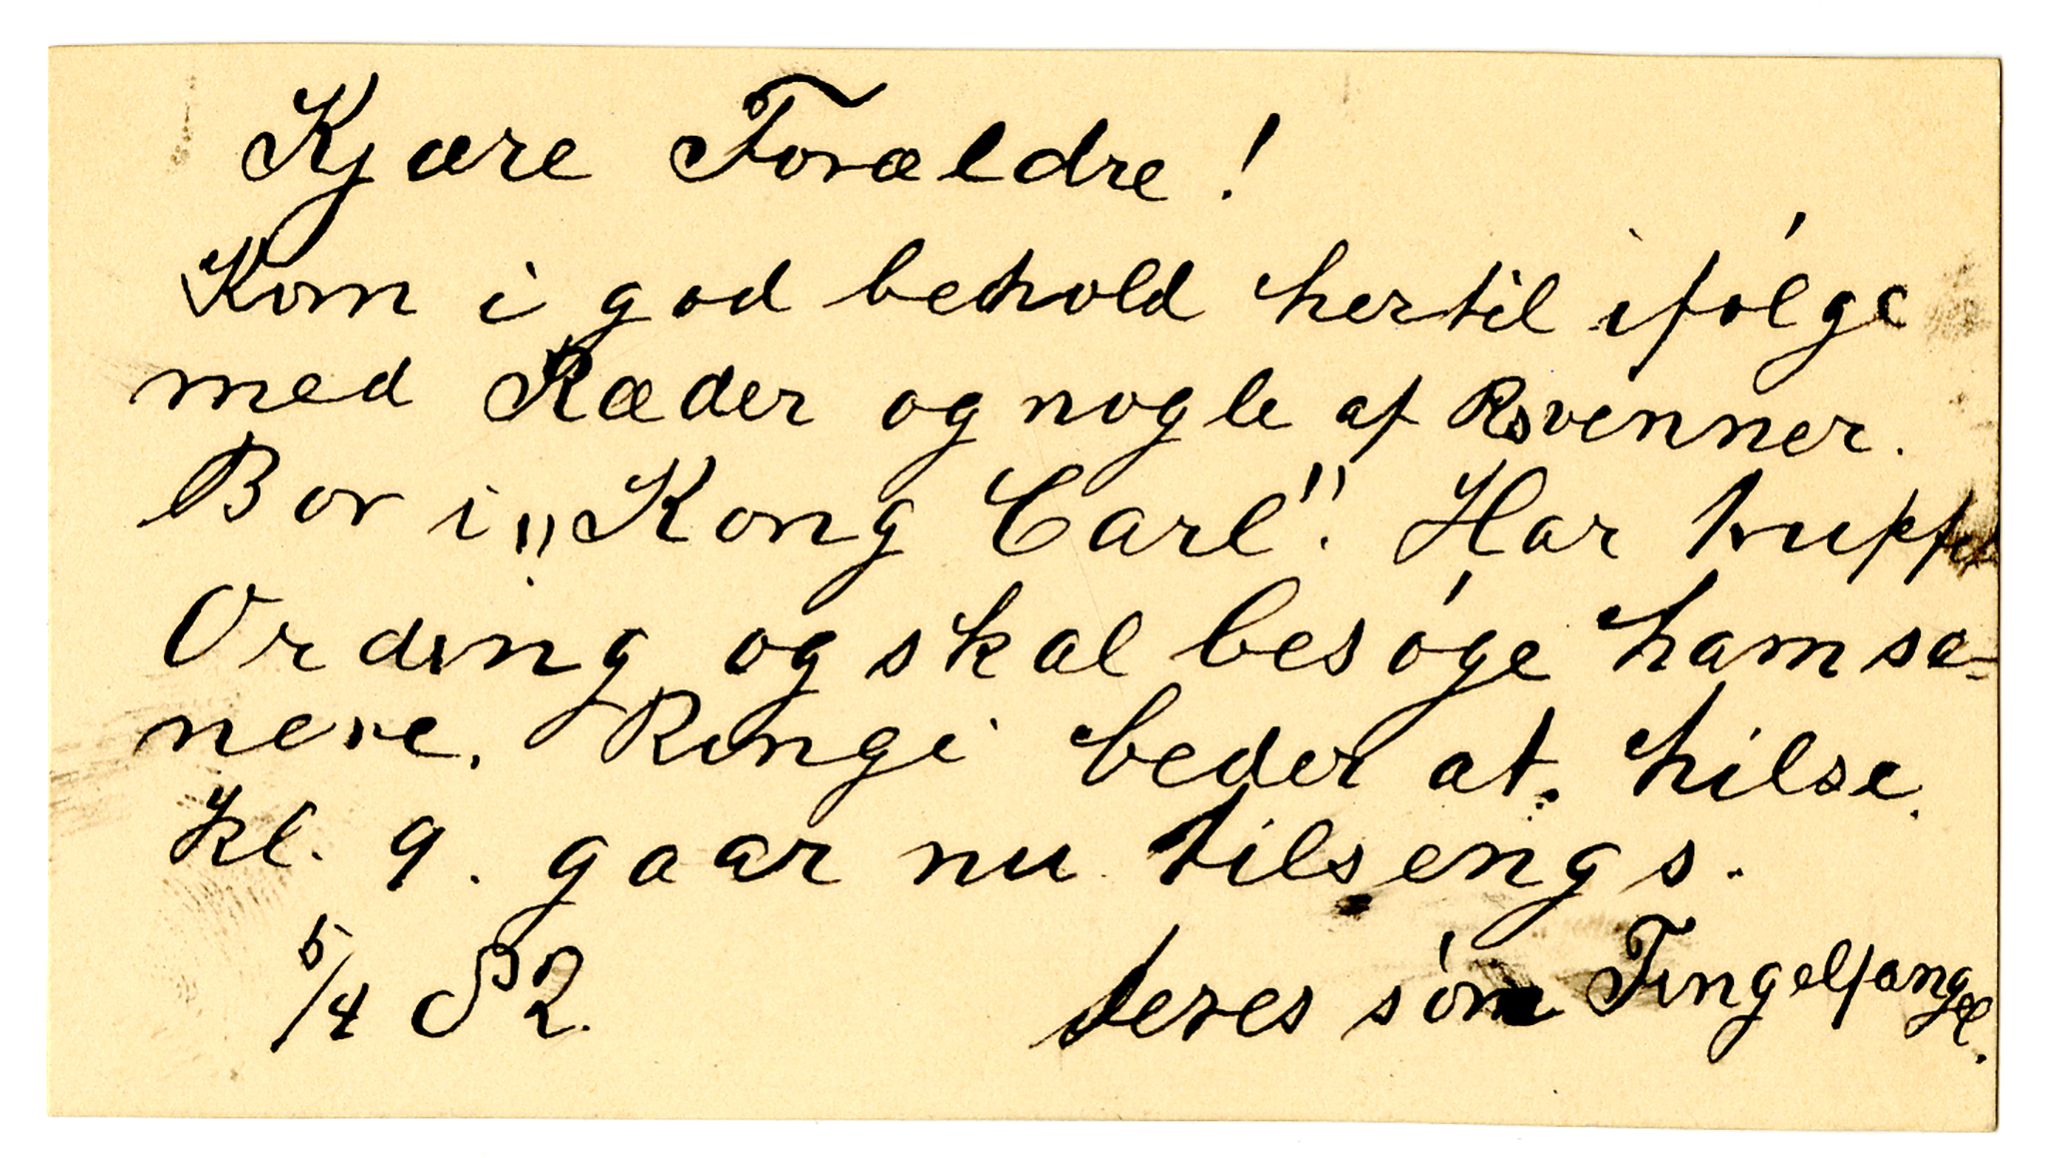 Kjære Forældre!
Kom i god behold hertil ifölge
med Ræder og nogle af Rs venner.
Bor i „Kong Carl". Har truffet
Ording og skal besöge ham se-
nere. Ringi beder at hilse.
Kl. 9. gaar nu tilsengs.
5/4 82. deres sön Tingelfangel.